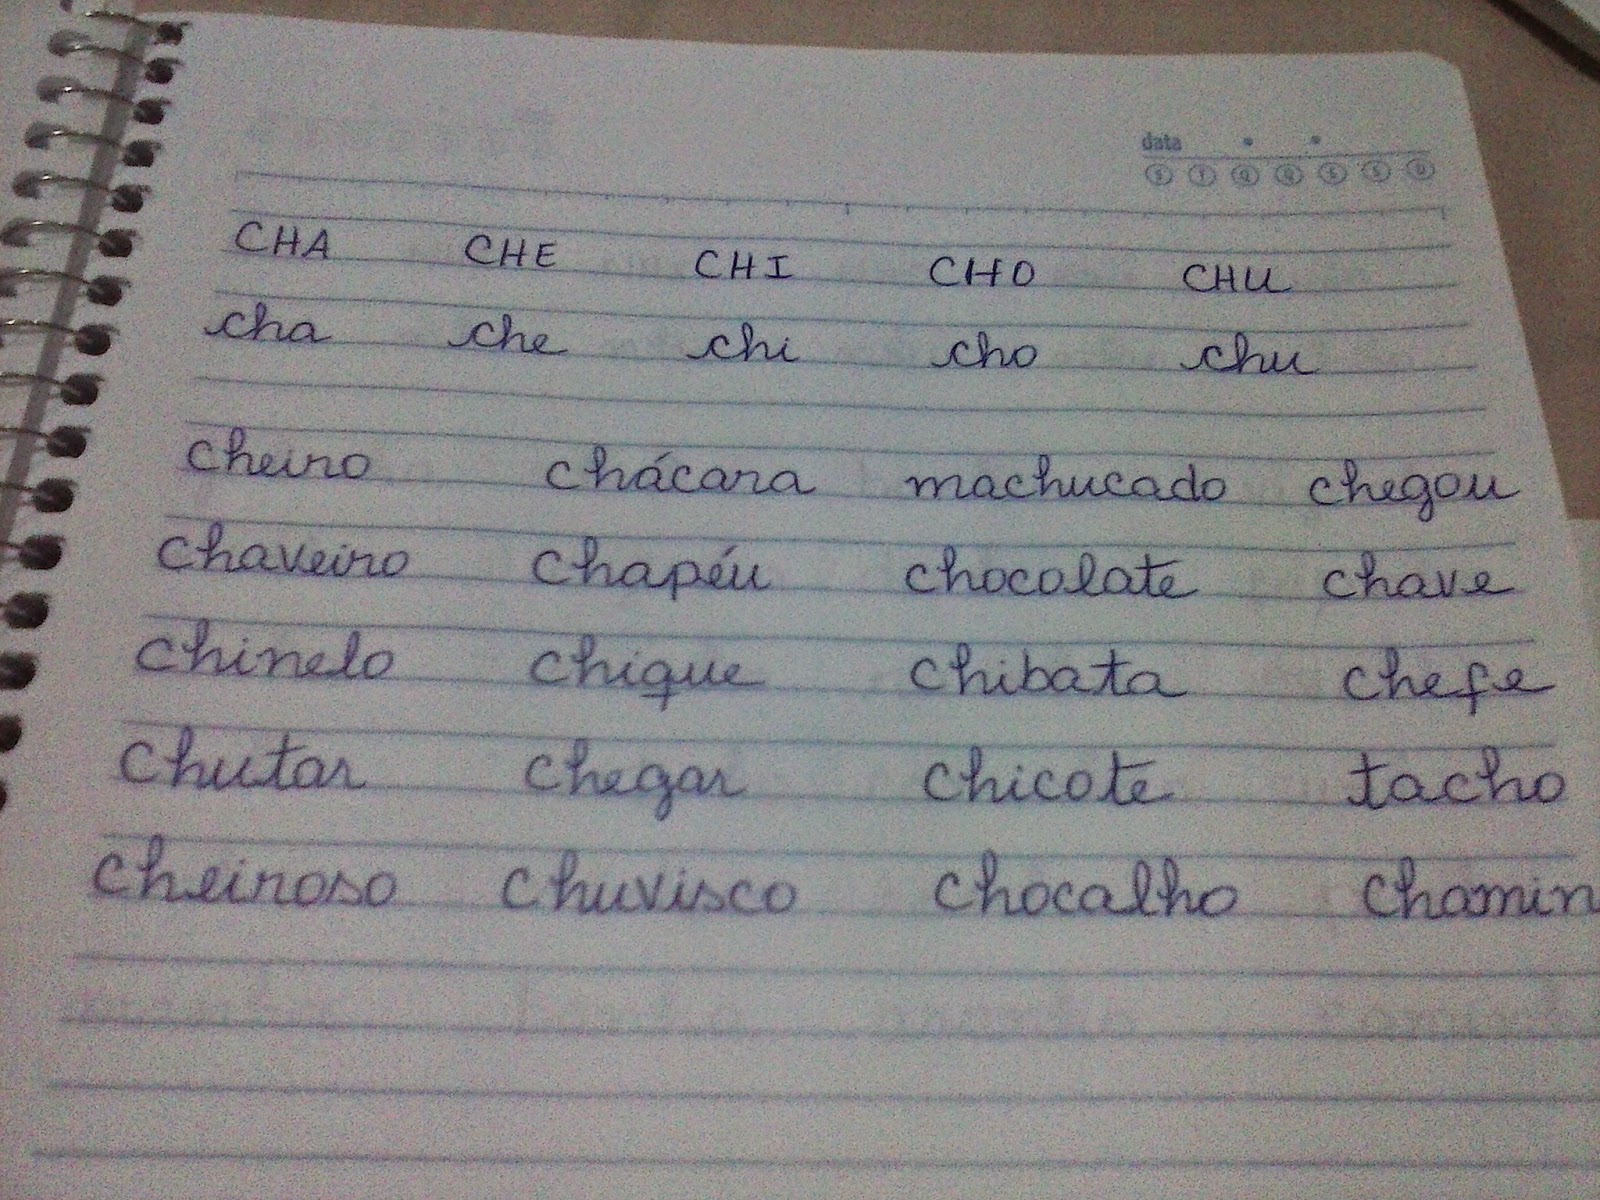 data
S T Q Q S S D
CHA CHE CHI CHO CHU
cha che chi cho chu
cheiro chácara machucado chegou
chaveiro chapéu chocolate chave
chinelo chique chibata chefe
chutar chegar chicote tacho
cheiroso chuvisco chocalho chamin